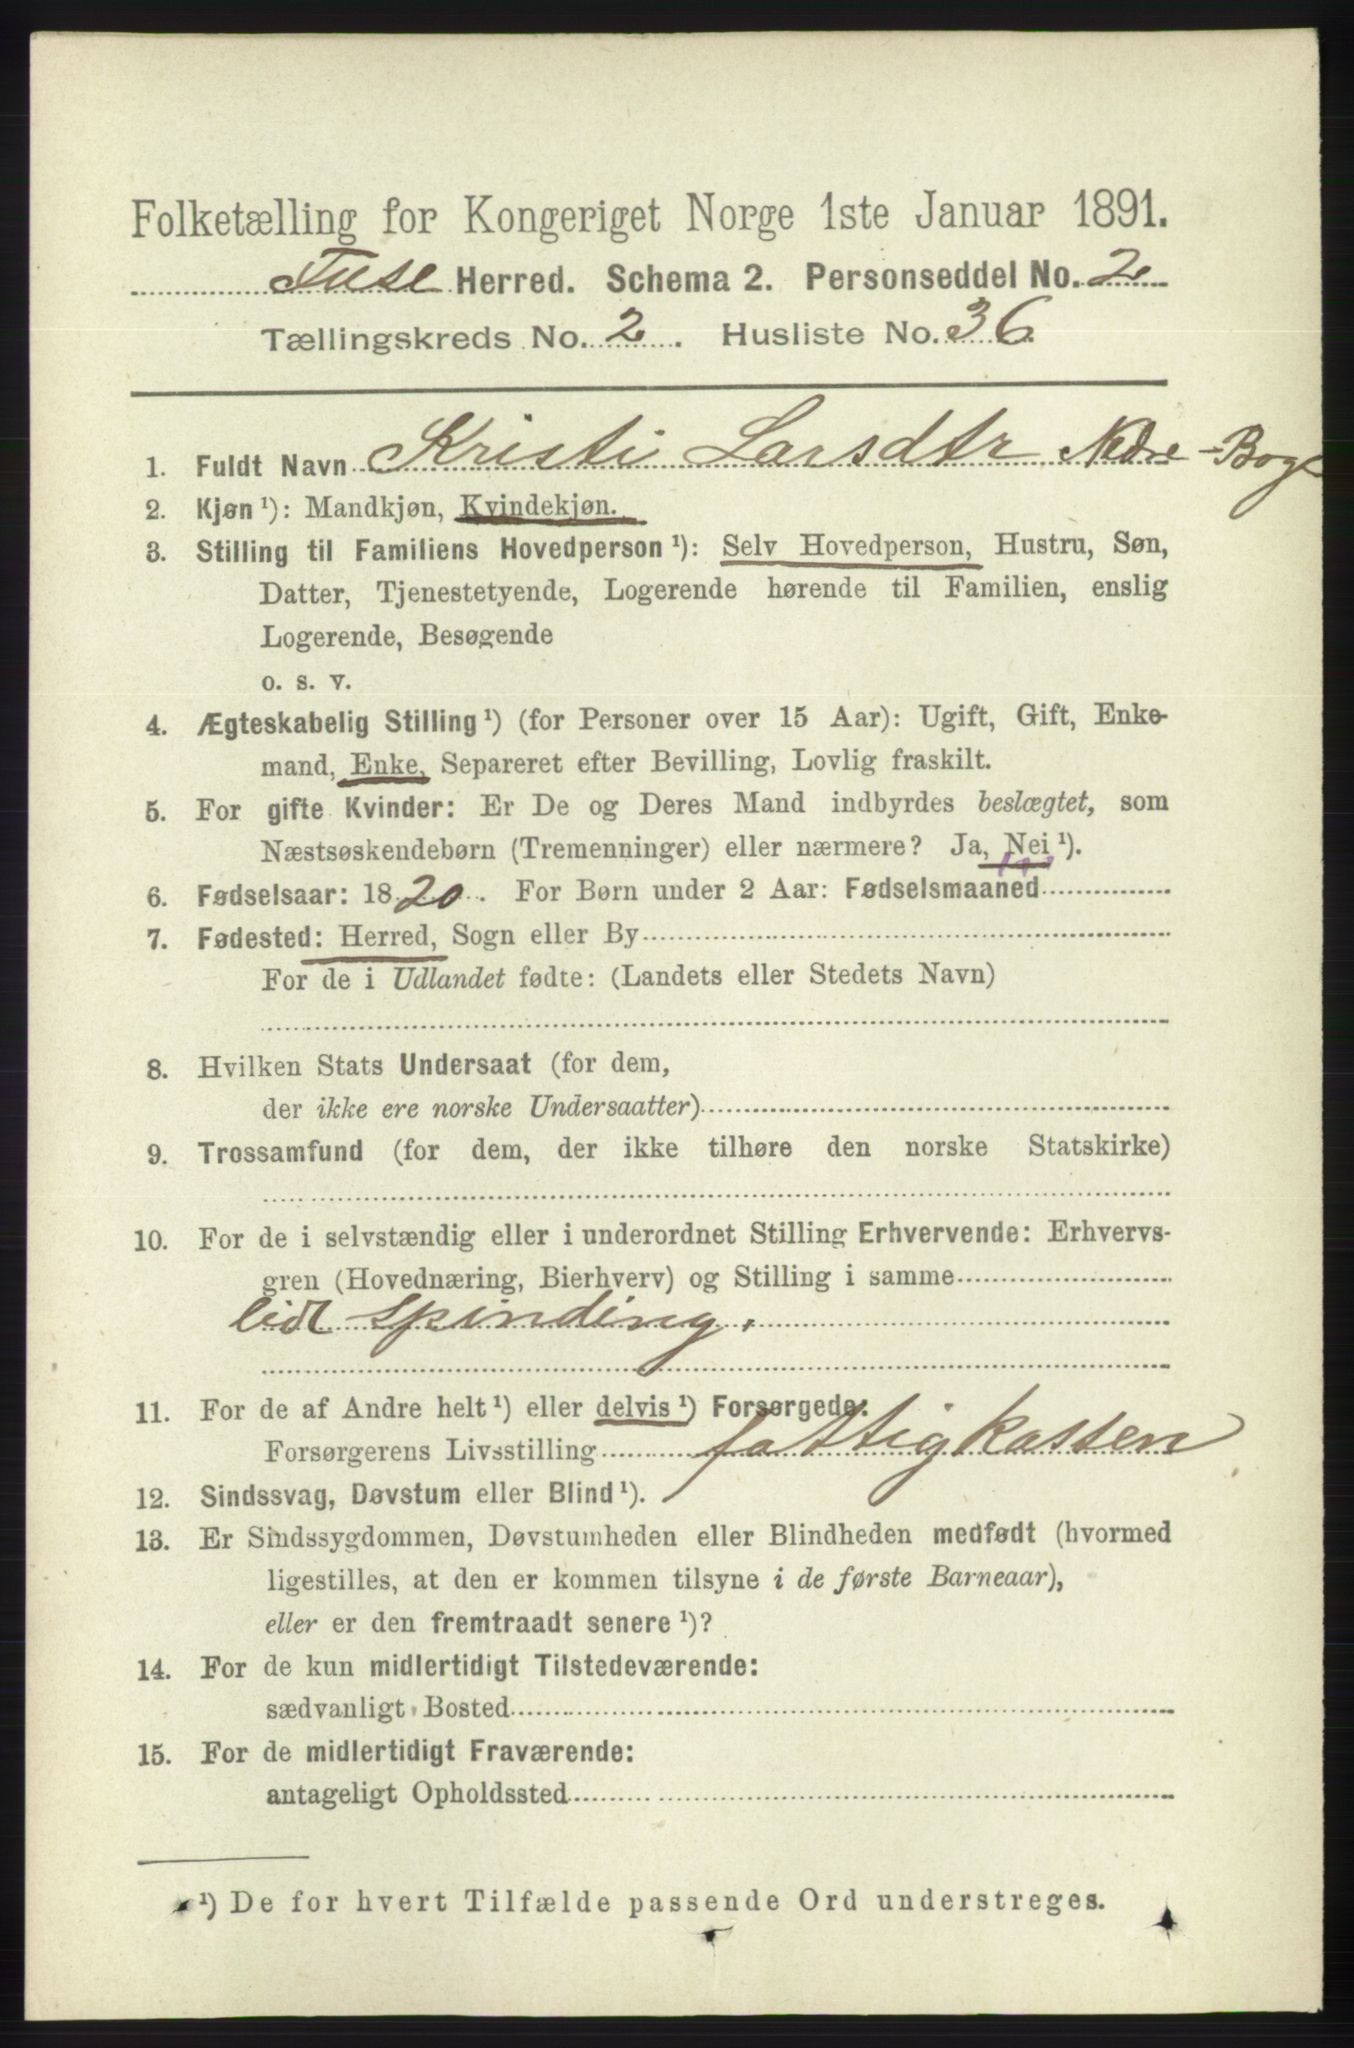 Folketælling for Kongeriget Norge 1ste Januar 1891.
Fuse Herred. Schema 2. Personseddel No. 2
Tællingskreds No. 2. Husliste No. 36
1. Fuldt Navn Kristi Larsdtr Nedre-Boge
2. Kjøn ¹): Mandkjøn, Kvindekjøn.
3. Stilling til Familiens Hovedperson ¹): Selv Hovedperson, Hustru, Søn,
Datter, Tjenestetyende, Logerende hørende til Familien, enslig
Logerende, Besøgende
o. s. v.
4. Ægteskabelig Stilling ¹) (for Personer over 15 Aar): Ugift, Gift, Enke-
mand, Enke, Separeret efter Bevilling, Lovlig fraskilt.
5. For gifte Kvinder: Er De og Deres Mand indbyrdes beslægtet, som
Næstsøskendebørn (Tremenninger) eller nærmere? Ja, Nei ¹).
6. Fødselsaar: 1820. For Børn under 2 Aar: Fødselsmaaned
7. Fødested: Herred, Sogn eller By
For de i Udlandet fødte: (Landets eller Stedets Navn)
8. Hvilken Stats Undersaat (for dem,
der ikke ere norske Undersaatter)
9. Trossamfund (for dem, der ikke tilhøre den norske Statskirke)
10. For de i selvstændig eller i underordnet Stilling Erhvervende: Erhvervs-
gren (Hovednæring, Bierhverv) og Stilling i samme
lidt spinding.
11. For de af Andre helt ¹) eller delvis ¹) Forsørgede:
Forsørgerens Livsstilling fattigkassen
12. Sindssvag, Døvstum eller Blind ¹).
13. Er Sindssygdommen, Døvstumheden eller Blindheden medfødt (hvormed
ligestilles, at den er kommen tilsyne i de første Barneaar),
eller er den fremtraadt senere ¹)?
14. For de kun midlertidigt Tilstedeværende:
sædvanligt Bosted
15. For de midlertidigt Fraværende:
antageligt Opholdssted
¹) De for hvert Tilfælde passende Ord understreges.